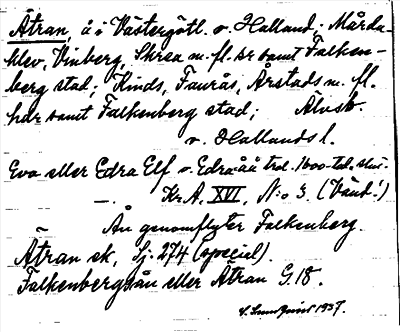 Ätran, å i Västergötl. o. Halland: Mårda-
klev, Vinberg, Skrea m. fl. sr samt Falken-
berg stad; Kinds, Faurås, Årstads m. fl.
hdr samt Falkenberg stad; Älvsb.
o. Hallands l.
Eva eller Edra Elf o. Edra åå trol. 1600-tal. slut
–. Kr. A. XVI, N:o 3. (Vänd!)
Ån genomflyter Falkenberg.
Ätran sk, Sj. 274 (special).
Falkenbergsån eller Ätran G. 18.
1937.